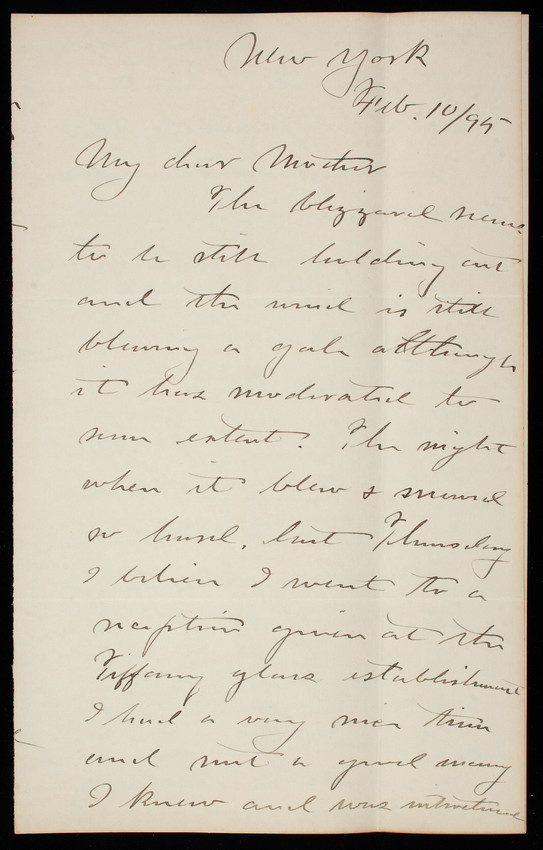 New York
Feb. 10/95
My dear Mother
The blizzard seems
to be still holding out
and the wind is still
blowing a gale although
it has moderated to
some extent. The night
when it blew & snowed
so hard, last Thursday
I believe I went to a
reception given at the
Tiffany glass establishment
I had a very nice time
and met a good many
I knew and was introduced